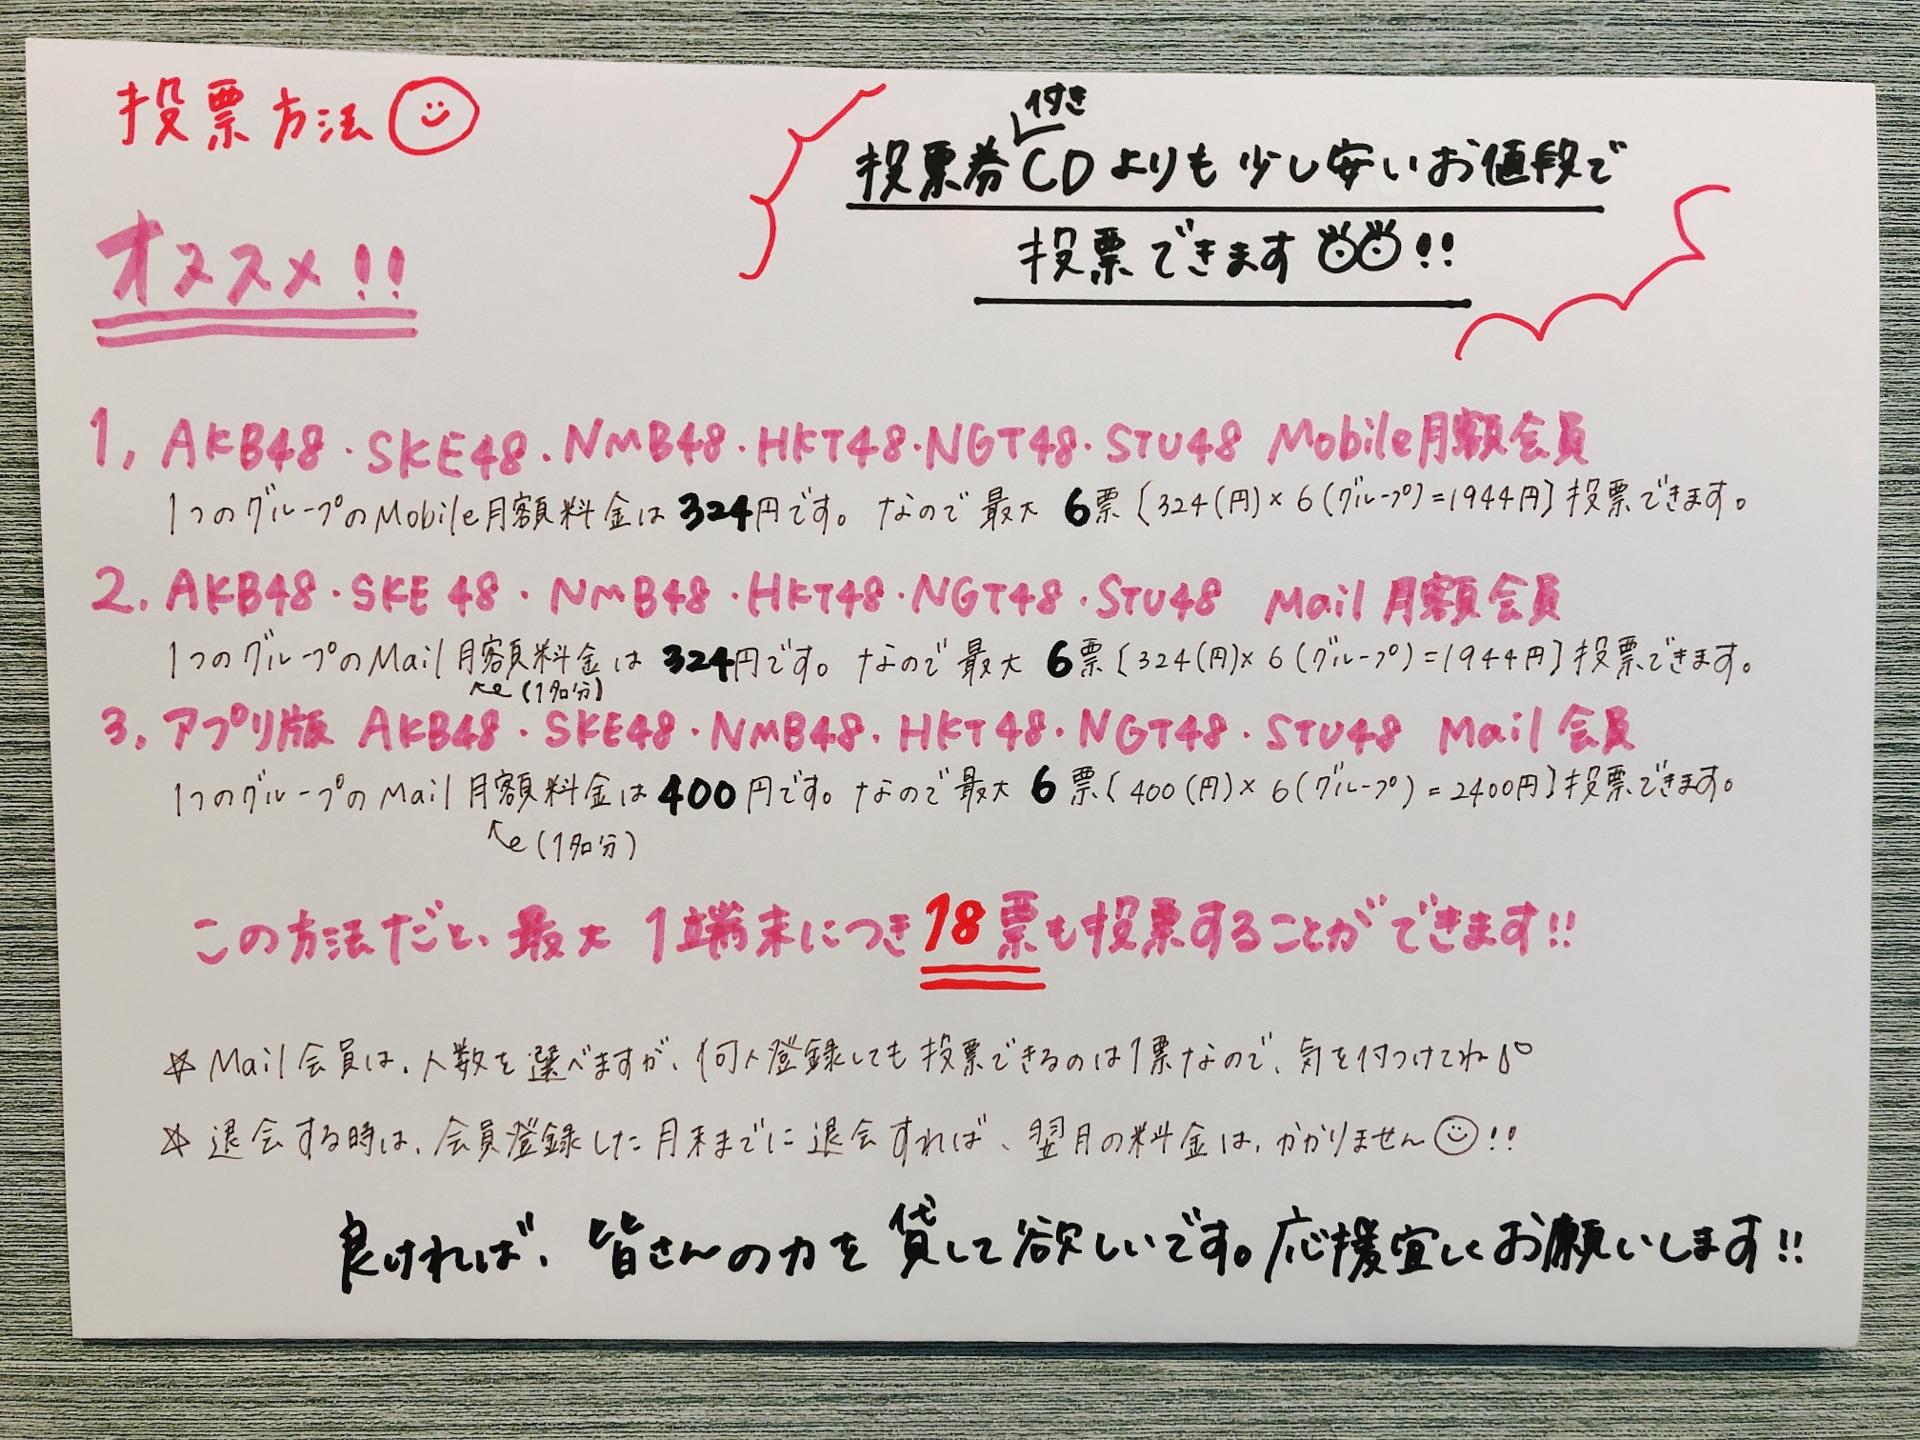 投票方法
オススメ!!
投票券付きCDよりも少し安いお値段で
投票できます!!
1, AKB48・SKE48・NMB48・HKT48・NGT48・STU48 Mobile月額会員
1つのグループのMobile月額料金は324円です。なので最大6票〔324(円)×6(グループ)=1944円〕投票できます。
2. AKB48・SKE48・NMB48・HKT48・NGT48・STU48 Mail月額会員
1つのグループのMail月額料金は324円です。なので最大6票〔324(円)×6(グループ)=1944円〕投票できます。
(1名分)
3. アプリ版 AKB48・SKE48・NMB48・HKT48・NGT48・STU48 Mail会員
1つのグループのMail月額料金は400円です。なので最大6票〔400(円)×6(グループ)=2400円〕投票できます。
(1名分)
この方法だと、最大1端末につき18票も投票することができます!!
☆Mail会員は、人数を選べますが、何人登録しても投票できるのは1票なので、気を付つけてね
☆退会する時は、会員登録した月末までに退会すれば、翌月の料金は、かかりません!!
良ければ、皆さんの力を貸して欲しいです。応援宜しくお願いします!!